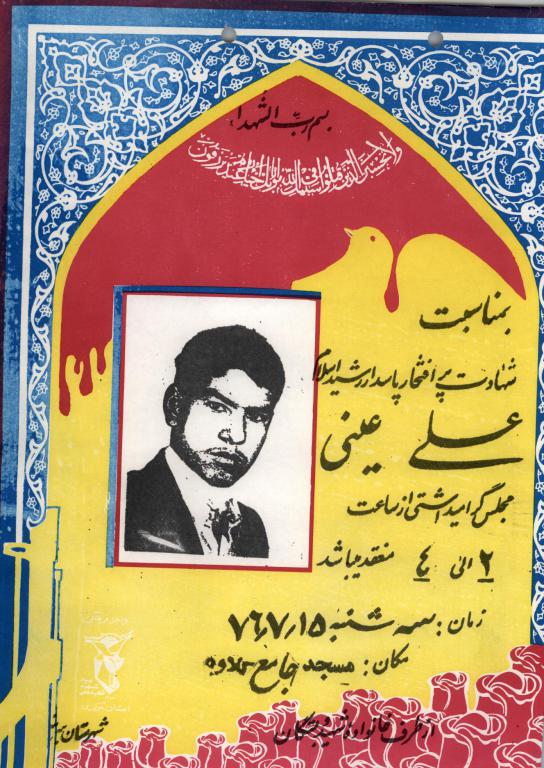 بسم ربّ الشهداء
ولا تحسبن الذین قتلوا فی سبیل الله امواتا بل احیاء عند ربهم یرزقون
بمناسبت
شهادت پر افتخار پاسدار رشید اسلام
علی عینی
مجلس گرامیداشتی از ساعت
۲ الی ۴ منعقد میباشد
زمان: سه شنبه ۷۶/۷/۱۵
مکان: مسجد جامع
از طرف خانواده شهید و بستگان
شهرستان